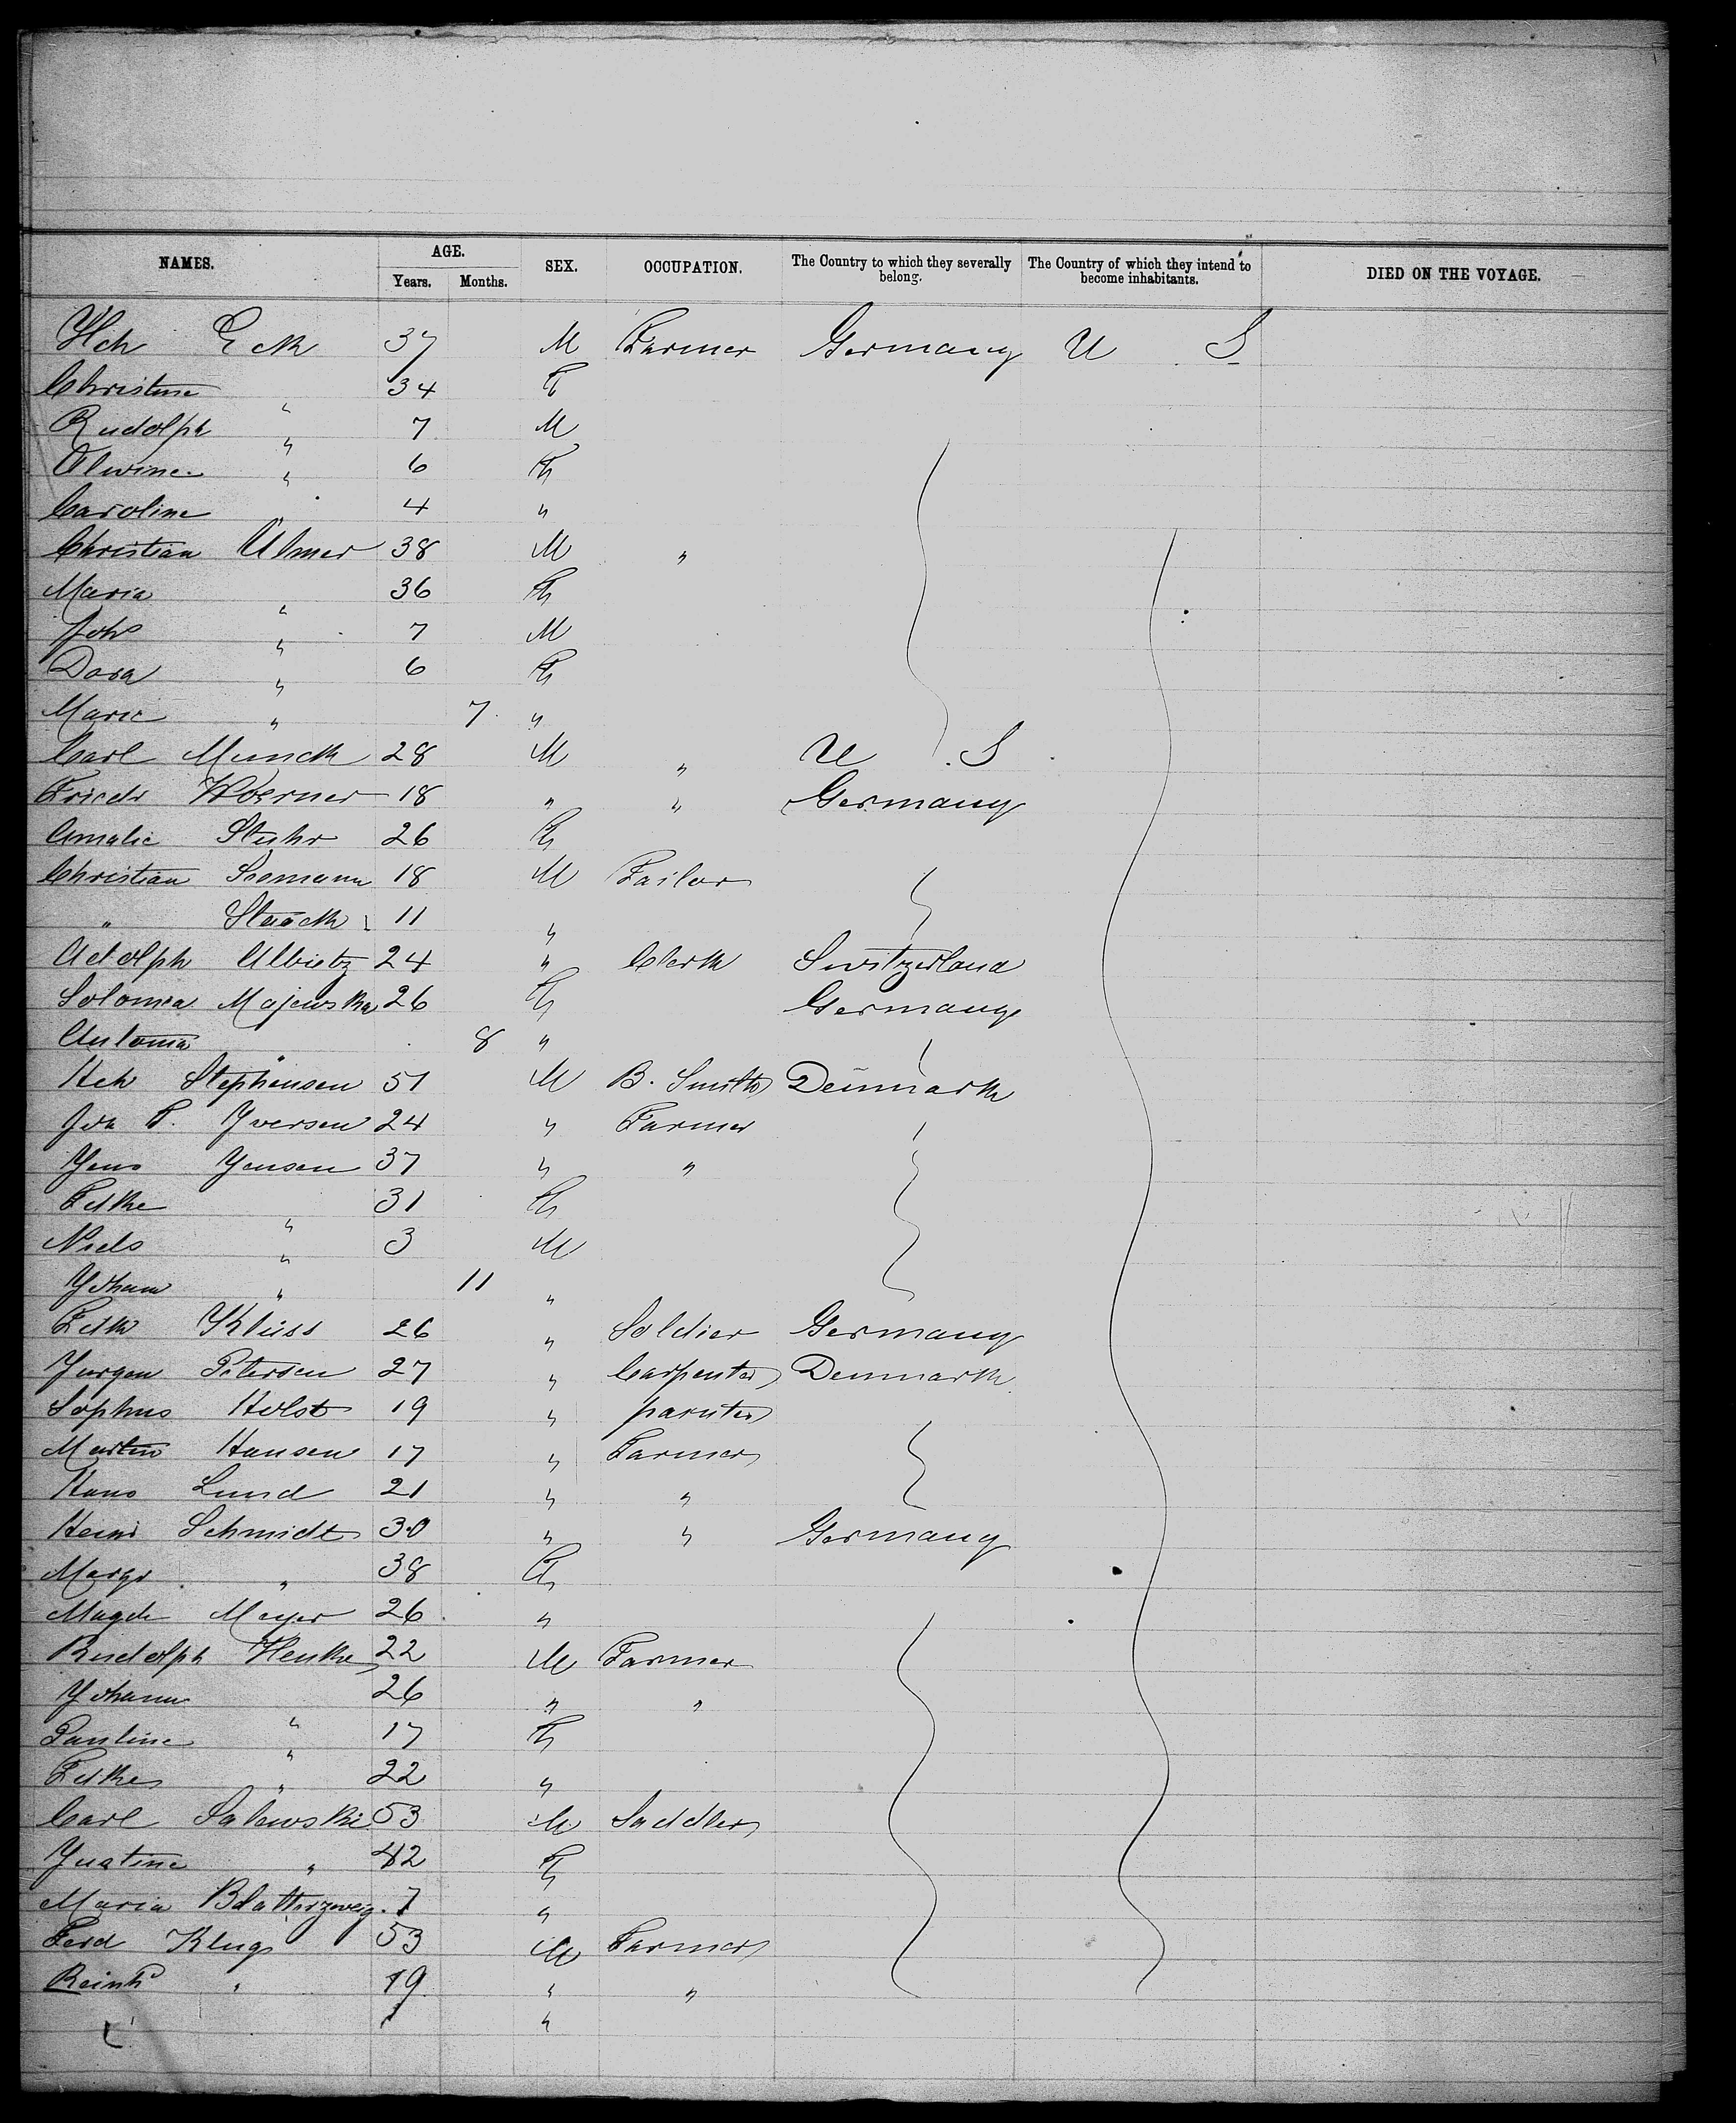 NAMES. AGE. SEX. OCCUPATION. The Country to which they severally belong. The Country of which they intend to become inhabitants. DIED ON THE VOYAGE.
Years. Months.
Hch Eck 37 M Farmer Germany U S
Christine " 34 F
Rudolph " 7 M
Alwine " 6 F
Caroline " 4 "
Christian Ulmer 38 M "
Maria " 36 F
Joh " 7 M
Dora " 6 F
Marie " 7 "
Carl Munck 28 M " U S
Friedr Woerner 18 " " Germany
Amalie Stuhr 26 F
Christian Seemann 18 M Tailor
" Staack 11 "
Adolph Albietz 24 " Clerk Switzerland
Solomea Majewska 26 F Germany
Antonia " 8 "
Hch Stephensen 51 M B. Smith Denmark
P. Iversen 24 " Farmer
Jens Jensen 37 " "
31 F
Niels " 3 M
Johann " 11 "
26 " Soldier Germany
Jurgen Petersen 27 " Carpenter Denmark
Sophus Holst 19 " painter
Martin Hansen 17 " Farmer
Hans Lund 21 " "
Heinr Schmidt 30 " " Germany
Margr " 38 F
Magde Meyer 26 "
Rudolph Henke 22 M Farmer
Johann " 26 " "
Pauline " 17 F
" 22 "
Carl Salewski 53 M Saddler
Justine " 42 F
Maria Blatterzweig 7 "
Ferd Klug 53 M Farmer
Reinhd " 19 " "
"